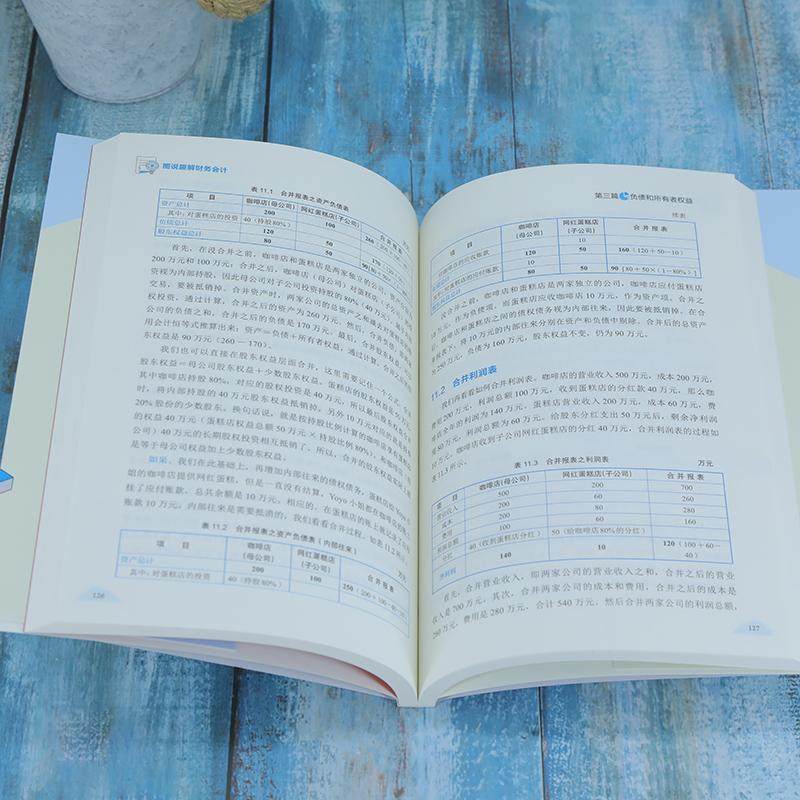 图说趣解财务会计
表 11.1 合并报表之资产负债表
项 目 咖啡店(母公司) 网红蛋糕店(子公司) 合 并 报 表
资产总计 200 100
其中:对蛋糕店的投资 40(持股80%)
负债总计 120 50
股东权益总计 80 50
首先,在没合并之前,咖啡店和蛋糕店是两家独立的公司,资产分别为
200 万元和 100 万元;合并之后,咖啡店(母公司)对蛋糕店(子公司)的投
资视为内部持股,因此母公司对子公司投资持股的 80%(40 万元)
交易,要被抵销掉。合并资产时,两家公司的总资产之和减去对蛋糕店的股
权投资,通过计算,合并之后的资产为 260 万元。然后,合并负债,
公司的负债之和,合并之后的负债是 170 万元。最后,合并股东权益,
用会计恒等式推算出来:资产=负债+所有者权益,通过计算,合并后的股东
权益是 90 万元(260-170)。
我们也可以直接在股东权益层面合并,这里需要记住一个公式,
股东权益=母公司股东权益+少数股东权益。蛋糕店的股东权益是 50 万元,
其中咖啡持股 80%,对应的股权投资是 40 万元,所以最后股东权益
时,将内部持股的 40 万元股东权益抵销掉。另外 10 万元对应的是
20%股份的少数股东。换句话说,就是按持股比例计算的咖啡店享有蛋糕店
的权益 40 万元(蛋糕店权益总额 50 万元×持股比例 80%),和咖啡店(母
公司)40 万元的长期股权投资相互抵销了。所以,合并的股东权益
是等于母公司权益加上少数股东权益。
如果,我们在此基础上,再增加内部往来的债权债务,蛋糕店给 Yoyo 小
姐的咖啡店提供网红蛋糕,但是一直没有结算,Yoyo 小姐都在咖啡店的账上
挂了应付账款,总共余额是 10 万元,相应的,在蛋糕店的账上
账款 10 万元。内部往来是要抵销的,我们看看合并过程,如表 11.2
表 11.2 合并报表之资产负债表(内部往来)
项 目 咖啡店(母公司) 网红蛋糕店(子公司) 合 并 报 表
资产总计 200 100 250(200+100-40-10)
其中:对蛋糕店的投资 40(持股80%)
126
第三篇 负债和所有者权益
续表
咖啡店(母公司) 网红蛋糕店(子公司) 合 并 报 表
10
120 50 160(120+50-10)
10
80 50 90[80+50×(1-80%)]
我合并之前,咖啡店和蛋糕店是两家独立的公司,咖啡店应付蛋糕店
10 万元,作为负债项,而蛋糕店应收咖啡店 10 万元,作为资产项。合并之
后,咖啡店和蛋糕店之间的债权债务视为内部往来,因此要被抵销掉。在合
并报表下,将 10 万元的内部往来分别在资产和负债中剔除。合并后的总资产
为 250 万元,负债为 160 万元,股东权益不变,仍为 90 万元。
11.2 合并利润表
我们再看看如何合并利润表。咖啡店的营业收入 500 万元,成本 200 万元,
费用 200 万元,利润总额 100 万元,收到蛋糕店的分红款 40 万元,那么咖
啡店全年的利润为 140 万元,蛋糕店营业收入 200 万元,成本 60 万元,费
用 80 万元,利润总额为 60 万元。给股东分红支出 50 万元后,剩余净利润
10 万元。咖啡店收到子公司网红蛋糕店的分红 40 万元,合并利润表的过程如
表 11.3 所示。
表 11.3 合并报表之利润表 万元
项 目 咖啡店(母公司) 网红蛋糕店(子公司) 合 并 报 表
营业收入 500 200 700
成本 200 60 260
费用 200 80 280
利润总额 100 60 160
分红 40(收到蛋糕店分红) 50(给咖啡店80%的分红)
净利润 140 10 120(100+60-40)
首先,合并营业收入,即两家公司的营业收入之和,合并之后的营业
收入是 700 万元。其次,合并两家公司的成本和费用,合并之后的成本是
260 万元,费用是 280 万元,合计 540 万元。然后合并两家公司的利润总额,
127